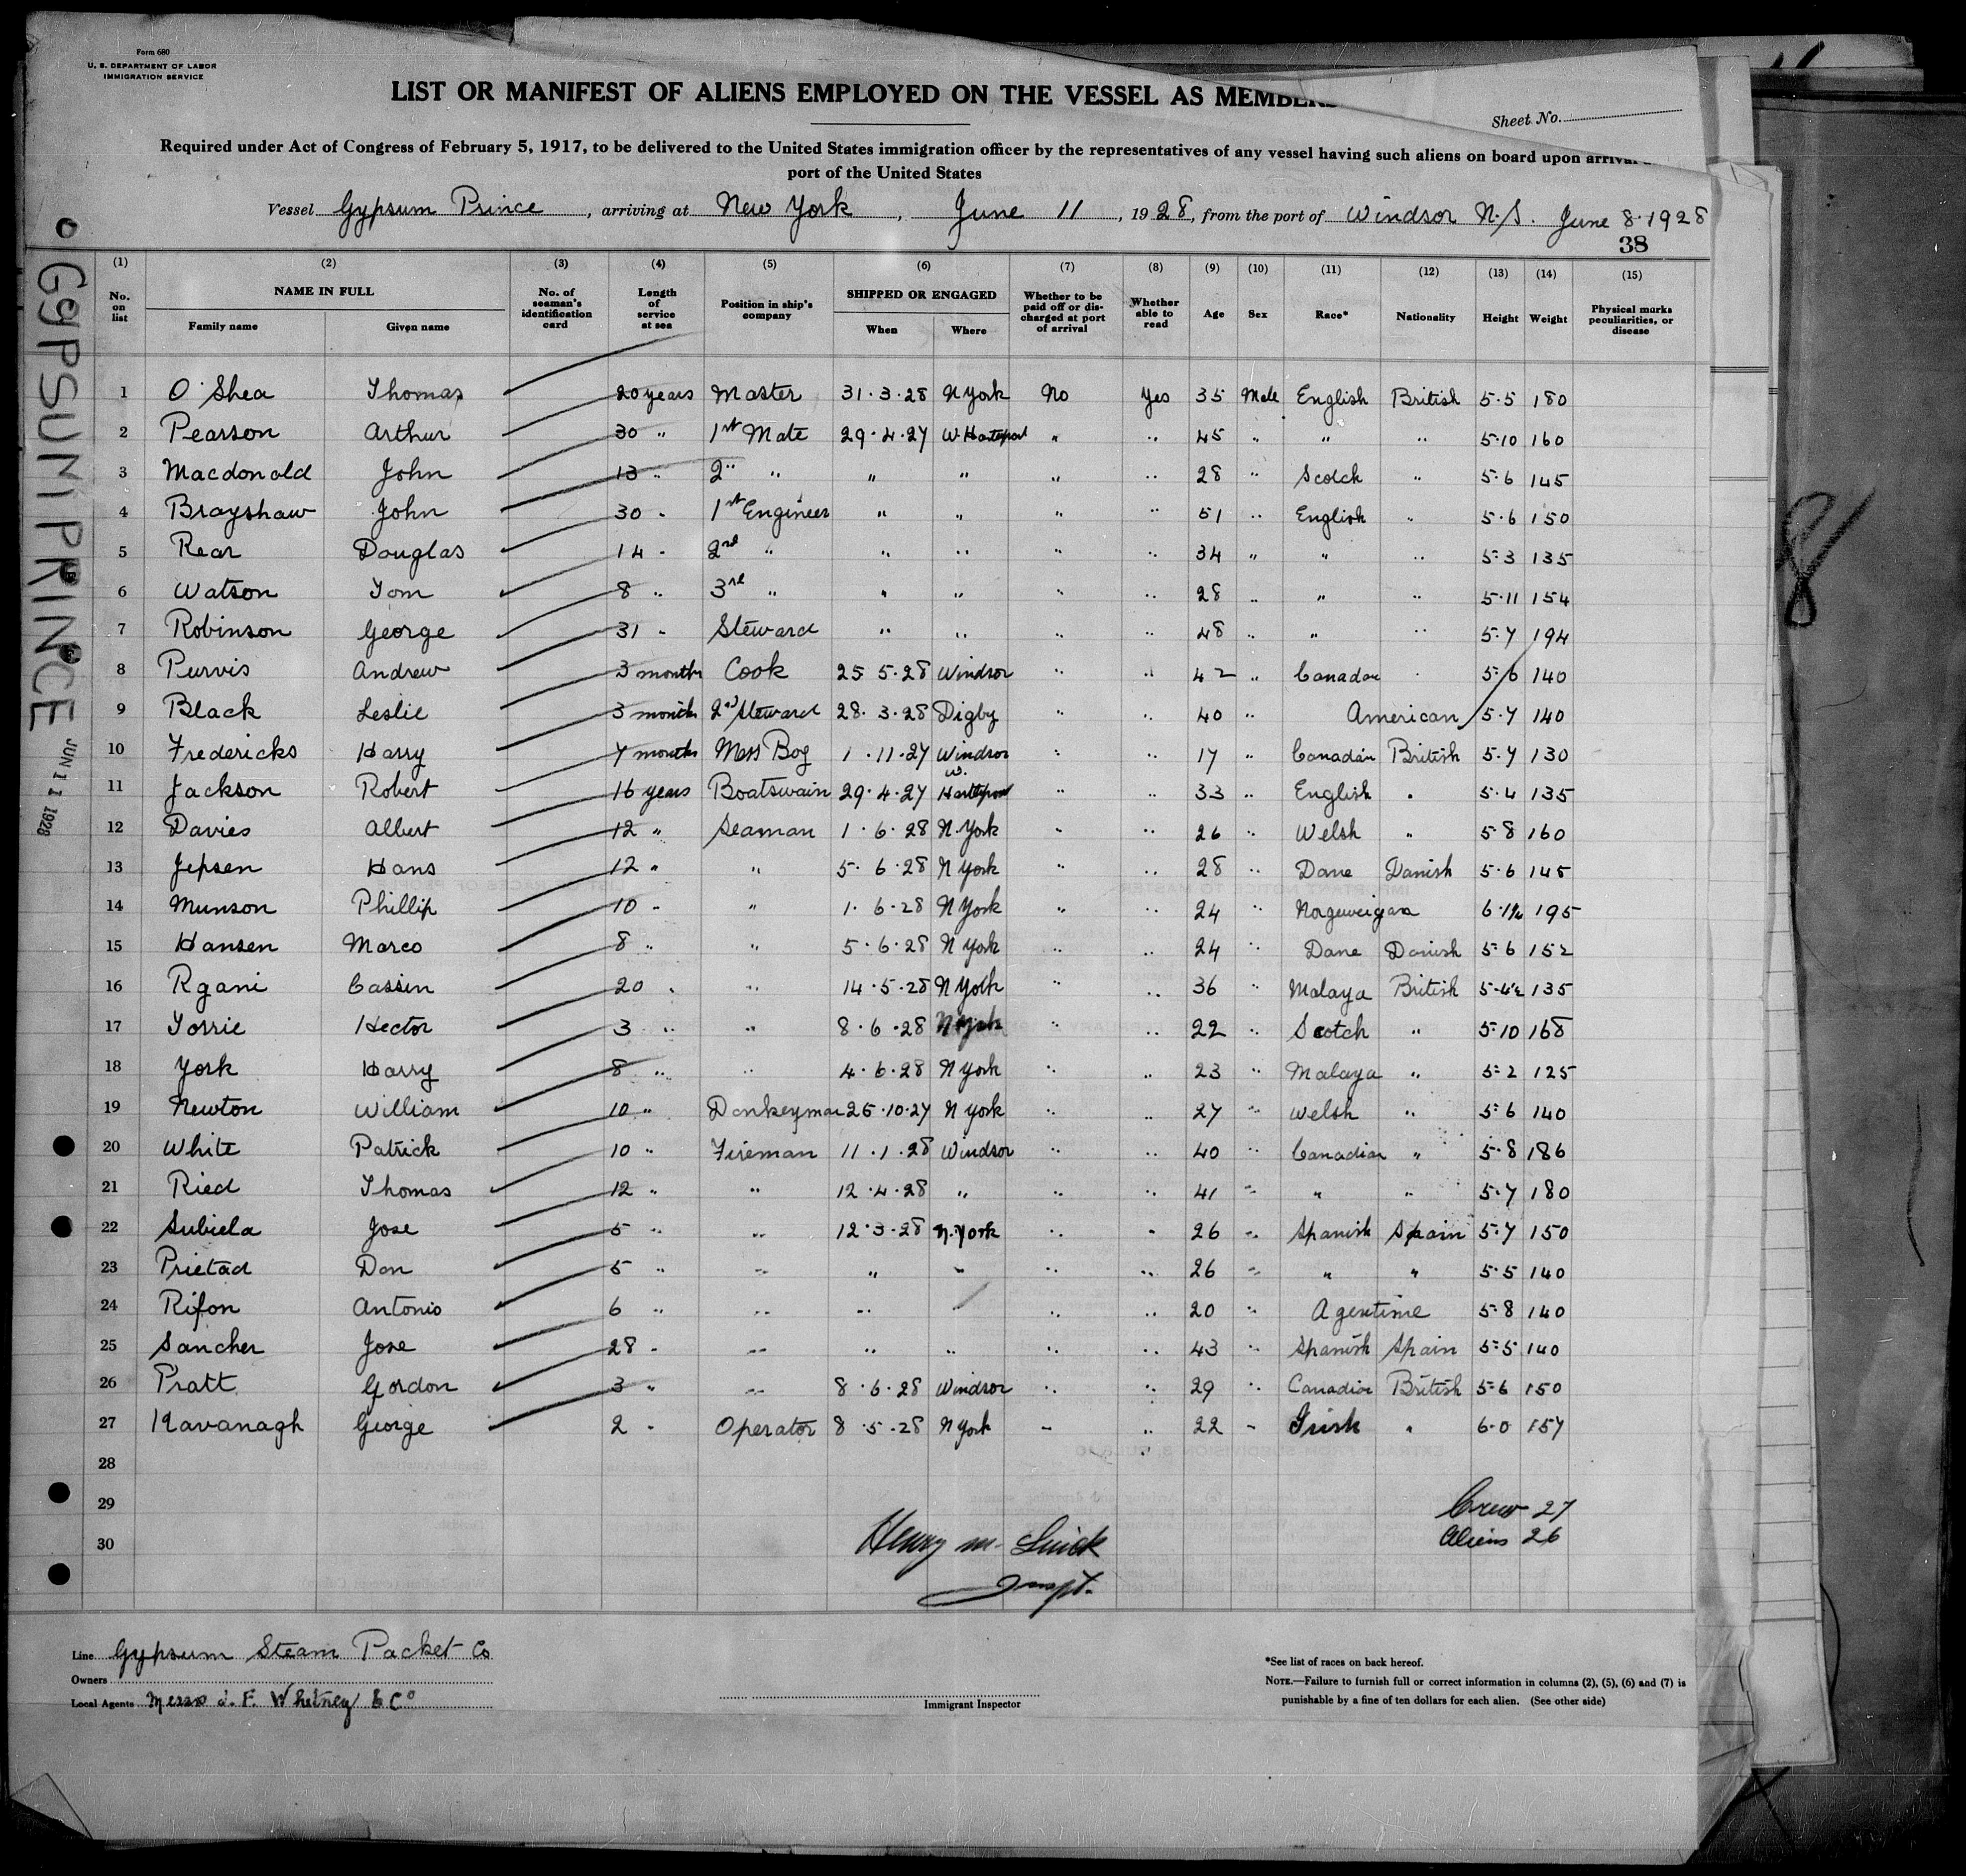 Form 680
U. S. DEPARTMENT OF LABOR
IMMIGRATION SERVICE
LIST OR MANIFEST OF ALIENS EMPLOYED ON THE VESSEL AS MEMBERS
Sheet No.
Required under Act of Congress of February 5, 1917, to be delivered to the United States immigration officer by the representatives of any vessel having such aliens on board upon arrival
port of the United States
Vessel Gypsum Prince, arriving at New York, June 11, 1928, from the port of Windsor N.S. June 8.1928
38
(1) (2) (3) (4) (5) (6) (7) (8) (9) (10) (11) (12) (13) (14) (15)
No. on list NAME IN FULL Family name Given name No. of seaman's identification card Length of service at sea Position in ship's company SHIPPED OR ENGAGED When Where Whether to be paid off or discharged at port of arrival Whether able to read Age Sex Race* Nationality Height Weight Physical marks peculiarities, or disease
1 O'Shea Thomas 20 years Master 31.3.28 N York No Yes 35 Male English British 5.5 180
2 Pearson Arthur 30 " 1st Mate 29.4.27 W. Hartepool " " 45 " " " 5.10 160
3 Macdonald John 13 " 2" " " " " " 28 " Scotch " 5.6 145
4 Brayshaw John 30 " 1st Engineer " " " " 51 " English " 5.6 150
5 Rear Douglas 14 " 2nd " " " " " 34 " " " 5.3 135
6 Watson Tom 8 " 3rd " " " " " 28 " " " 5.11 154
7 Robinson George 31 " Steward " " " " 48 " " " 5.7 194
8 Purvis Andrew 3 months Cook 25 5.28 Windsor " " 42 " Canadan " 5.6 140
9 Black Leslie 3 months 2nd Steward 28.3.28 Digby " " 40 " American 5.7 140
10 Fredericks Harry 7 months Mess Boy 1.11.27 Windsor " " 17 " Canadian British 5.7 130
11 Jackson Robert 16 years Boatswain 29.4.27 W. Hartlepool " " 33 " English " 5.4 135
12 Davies Albert 12 " Seaman 1.6.28 N.York " " 26 " Welsh " 5.8 160
13 Jepsen Hans 12 " " 5.6.28 N York " " 28 " Dane Danish 5.6 145
14 Munson Phillip 10 " " 1.6.28 N York " " 24 " 195
15 Hansen Marco 8 " " 5.6.28 N York " " 24 " Dane Danish 5.6 152
16 Rgani Cassin 20 " " 14.5.28 N York " " 36 " Malaya British 5-4½ 135
17 Torrie Hector 3 " " 8.6.28 N York " " 22 " Scotch " 5.10 168
18 York Harry 8 " " 4.6.28 N York " " 23 " Malaya " 5.2 125
19 Newton William 10 " Donkeyman 25.10.27 N York " " 27 " Welsh " 5.6 140
20 White Patrick 10 " Fireman 11.1.28 Windsor " " 40 " Canadian " 5.8 186
21 Ried Thomas 12 " " 12.4.28 " " " 41 " " " 5.7 180
22 Subiela Jose 5 " " 12.3.28 N.York " " 26 " Spanish Spain 5.7 150
23 Prietad Don 5 " " " " " " 26 " " " 5.5 140
24 Rifon Antonio 6 " " " " " " 20 " Agentime 5.8 140
25 Sancher Jose 28 " " " " " " 43 " Spanish Spain 5.5 140
26 Pratt Gordon 3 " " 8.6.28 Windsor " " 29 " Canadian British 5.6 150
27 Kavanagh George 2 " Operator 8.5.28 N York " " 22 " Irish " 6.0 157
28
29
30
Crew 27
Aliens 26
Henry M.
Inspt.
Line Gypsum Steam Packet Co
Owners
Local Agents Messrs J. F. Whitney & Co
Immigrant Inspector
*See list of races on back hereof.
NOTE.—Failure to furnish full or correct information in columns (2), (5), (6) and (7) is
punishable by a fine of ten dollars for each alien. (See other side)
GYPSUM PRINCE
JUN 11 1928